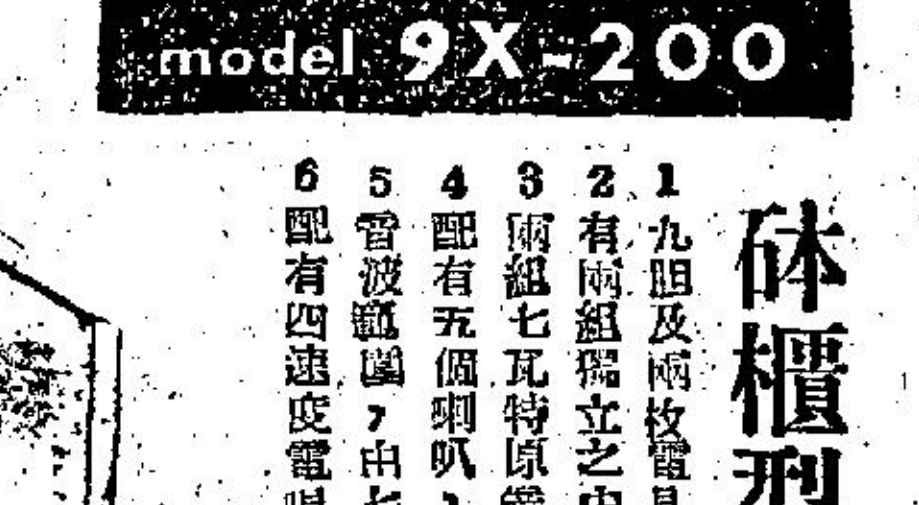 model 9X-200
砵櫃型
1 九胆及兩枚電晶
2 有兩組獨立之
3 兩組七瓦特原
4 配有五個喇叭、
5 音波範圍,由七
6 配有四速度電唱